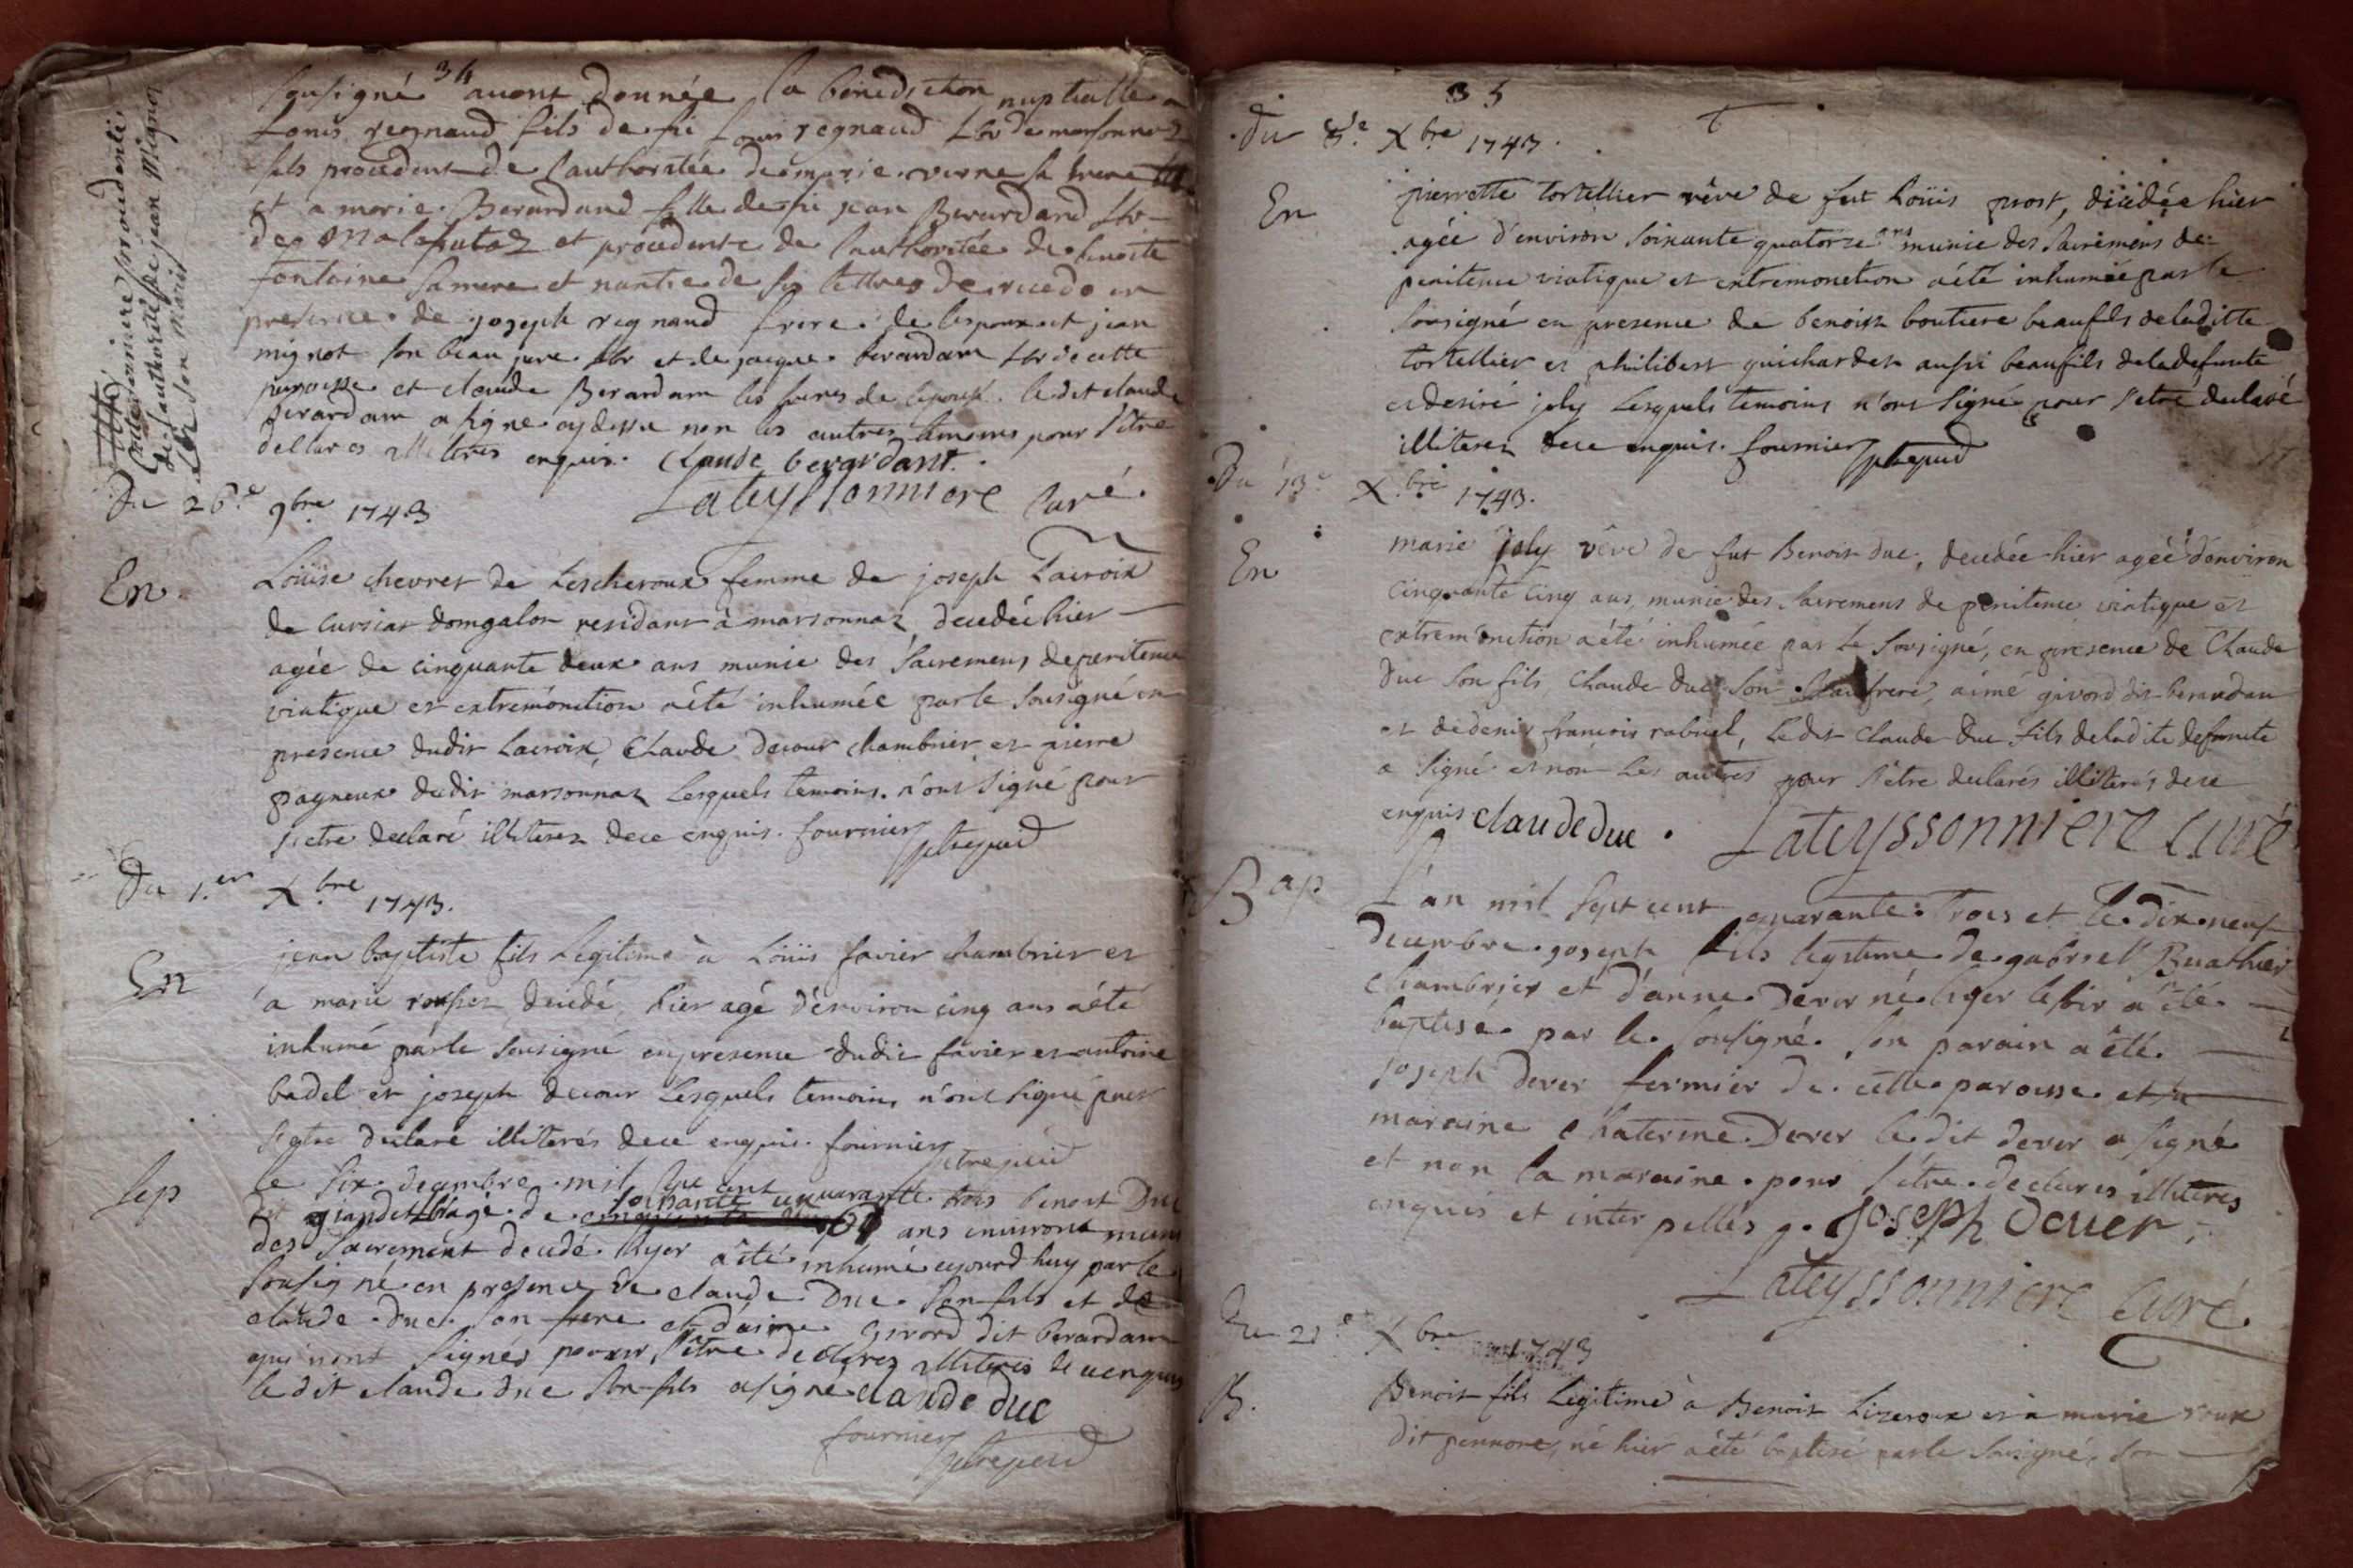 34
sousigné avons donnée la benediction nuptialle a
Louis regnaud fils de fu Louis regnaud Lbr de marsonnaz
fils procedent de l'authoritée de marie verne sa mere
et a marie Berardand fille de fu jean Berardand Lbr
des et procedente de l'authoritée de
fontaine sa mere et nantie de ses lettres de recedo en
presence de joseph regnaud frere de l'espoux et jean
mignot son beau pere Lbr et de jacque berardam Lbr de cette
paroisse et claude Berardam les freres de l'epouse. le dit claude
Berardam a signe cydessu non les autres temoins pour s'être
declares illiteres enquis. claude berardant.
Lateyssonniere Curé.
mere procedente
de l'authorité de jean Mignot
son mari
Du 26.e 9bre 1743
En
Loüise chevret de Lescheroux femme de joseph Lacroix
de Cursiat domgalon residant à marsonnaz, decedée hier
agée de cinquante deux ans munie des sacremens de penitence
viatique et extrêmonction a été inhumée par le sousigné en
presence dudit Lacroix, Claude decour chambrier et pierre
pagneux dudit marsonnaz Lesquels temoins n'ont signé pour
s'etre declaré illiterez de ce enquis. fournier
Du 1.er Xbre 1743.
En
jean baptiste fils Legitime à Loüis favier chambrier et
a marie decedé, hier agé d'environ cinq ans a été
inhumé par le sousigné en presence dudit favier et antoine
badel et joseph decour Lesquels temoins n'ont signé pour
s'etre declaré illiterés de ce enquis. fournier
Sep
le six decembre mil sept cent quarante trois benoit Duc
dit agé de soixante ans environt muni
des sacrement decedé hyer a été inhumé aujourd huy par le
sousigné en presence de claude Duc son fils et de
claude duc son frere et d'aime Givord dit berardam
qui n'ont signés pour s'être declarez illiteres de ce enquis
le dit claude duc son fils a signé claude duc
fournier
35
Du 8.e Xbre 1743.
En
pierrette tortellier vêve de fut Loüis prost, décédée hier
agée d'environ soixante quatorze ans munie des sacremens de
penitence viatique et extremonction a été inhumée par le
sousigné en presence de benoist boutiere beaufils de laditte
tortellier et philibert guichardet aussi beaufils de la defunte
et desiré joly Lesquels temoins n'ont signé pour s'etre declaré
illiterez de ce enquis. fournier
Du 13.e Xbre 1743.
En
marie joly vêve de fut Benoit duc, decedée hier agée d'environ
cinquante cinq ans, munie des sacremens de penitence viatique et
extrem'onction a été inhumée par le sousigné, en presence de Claude
Duc son fils, Claude duc son beaufrere, aimé givord dit berardan
et de denis françois rabuel, Ledit Claude Duc fils de ladite defunte
a signé et non Les autres pour s'etre declarés illiterés de ce
enquis claude duc. Lateyssonniere Curé
Bap
L'an mil sept cent quarante trois et le dix neuf
decembre joseph fils legitime de gabriel Buathier
chambrier et d'anne Dever né hyer le soir a été
baptisé par le sousigné son parain a été
joseph dever fermier de cette paroisse et sa
maraine chaterine Dever le dit dever a signé
et non la maraine pour s'être declarés illiteres
enquis et interpellés. joseph dever.
Lateyssonniere Curé.
Du 21.e Xbre 1743
B.
Benoit fils Legitime à Benoit Lizeroux et à marie roux
dit né hier a été baptisé par le sousigné, son